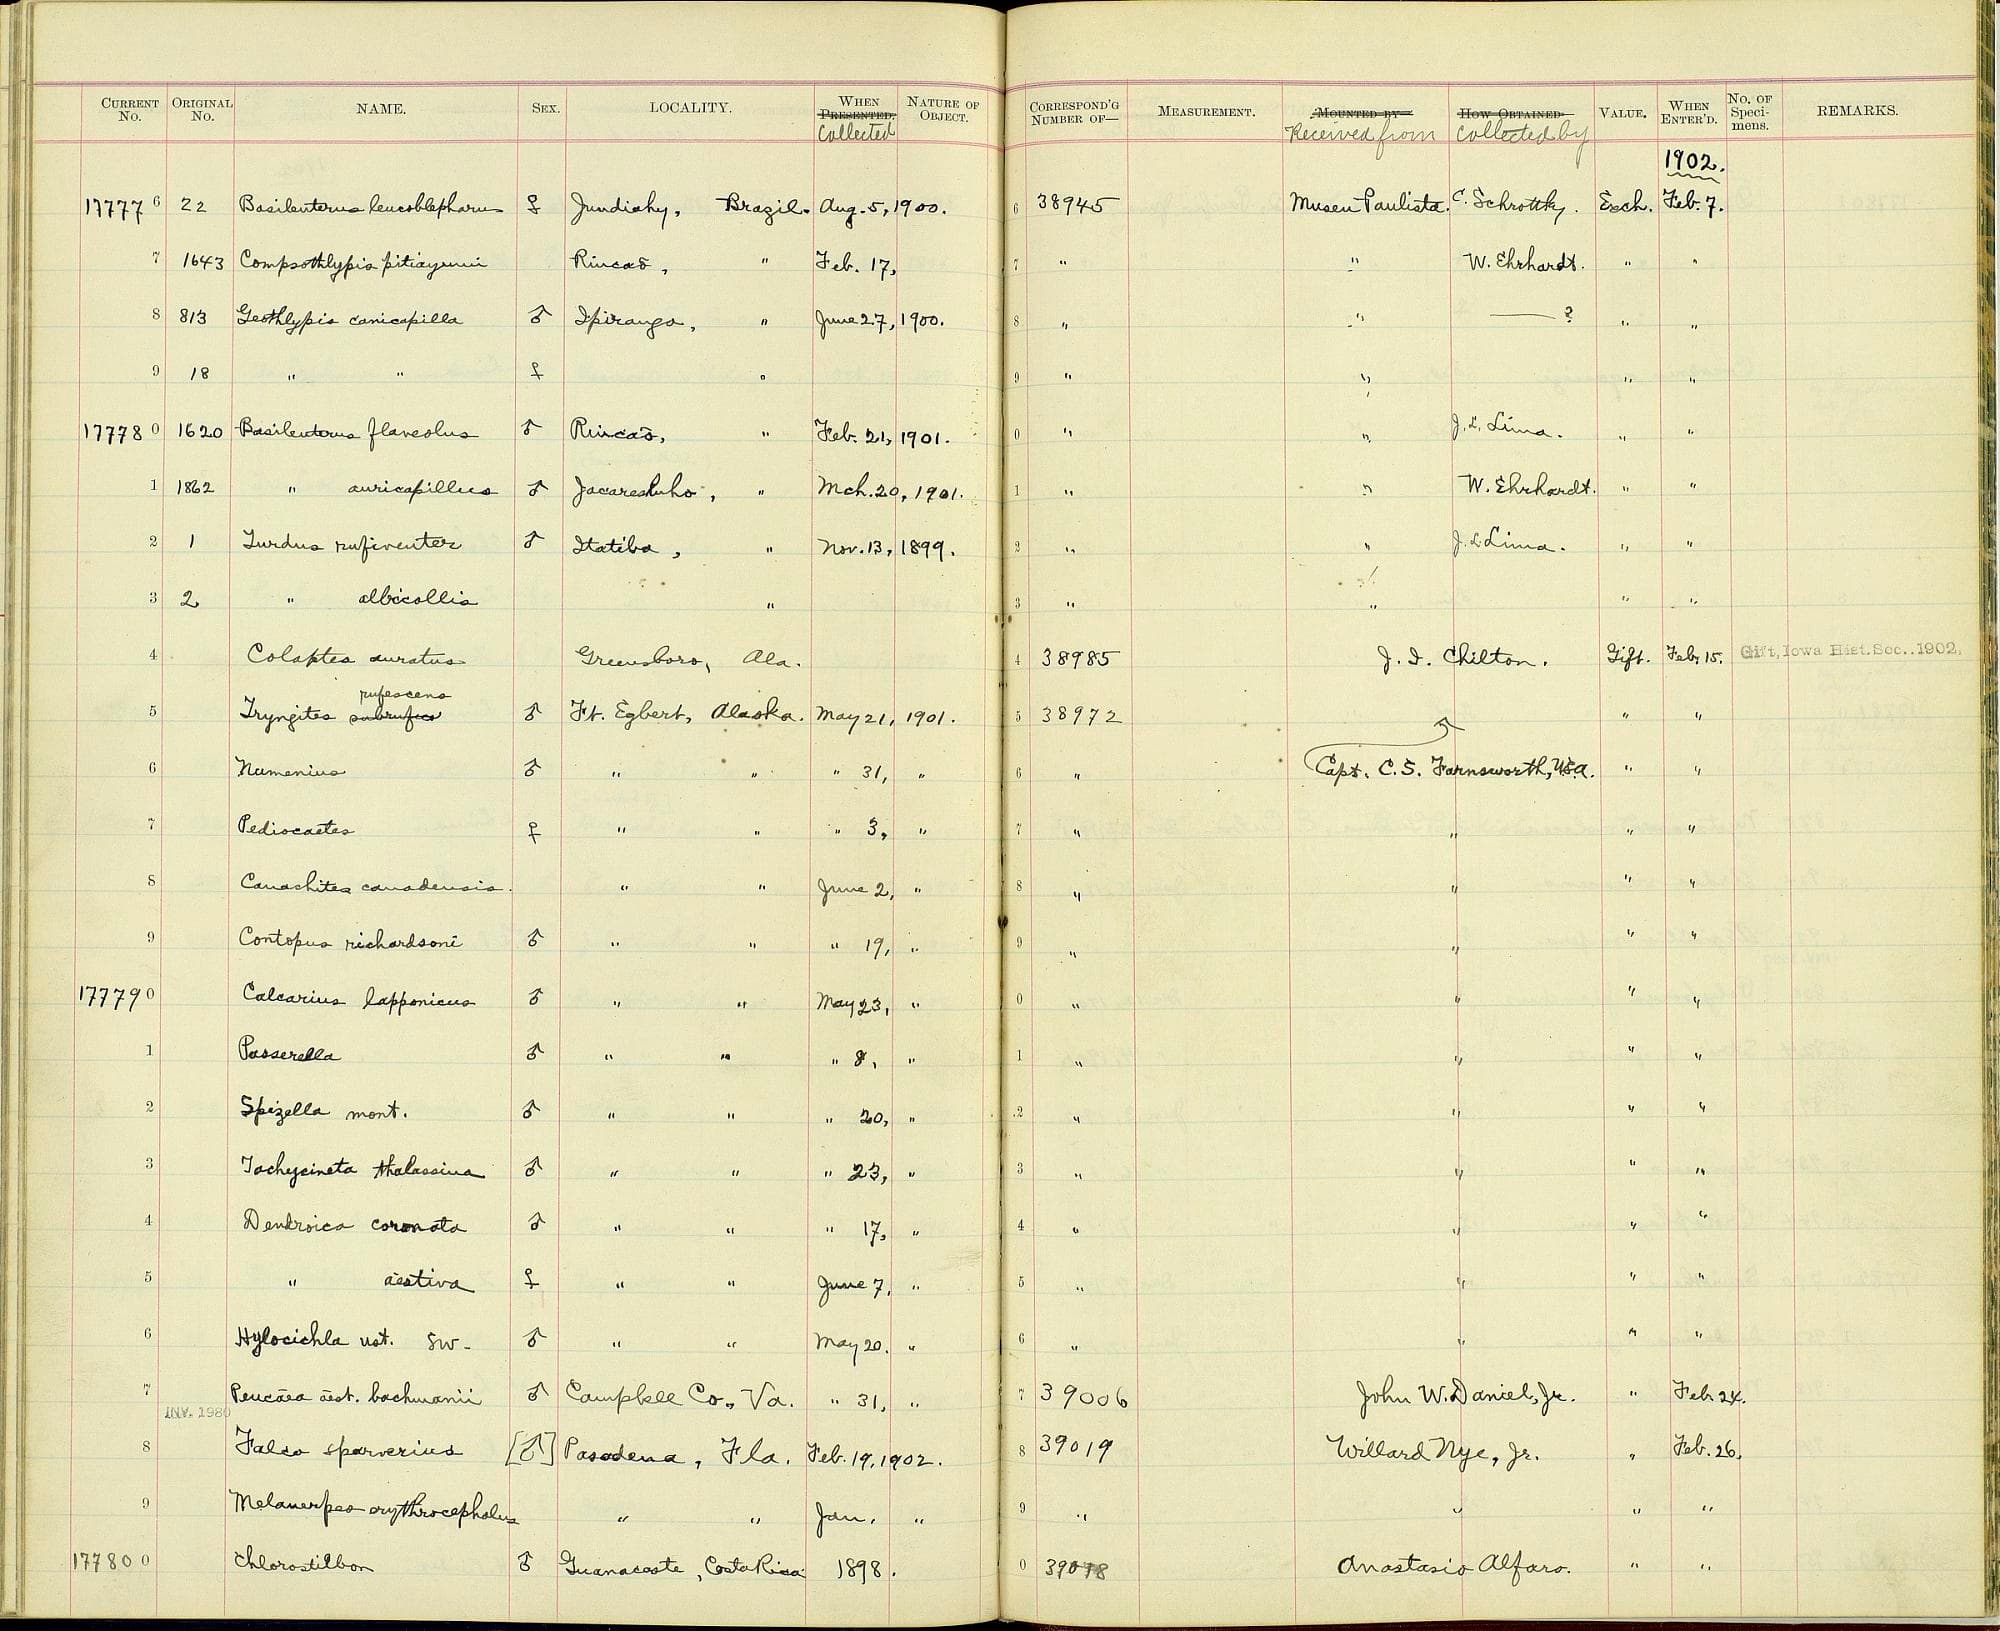 CURRENT No. ORIGINAL No. NAME. SEX. LOCALITY. WHEN PRESENTED. Collected NATURE OF OBJECT. CORRESPOND'G NUMBER OF— MEASUREMENT. MOUNTED BY Received from HOW OBTAINED Collected by VALUE. WHEN ENTER'D. No. OF Specimens. REMARKS.
1902.
177776 22 Basileuterus leucoblepharus ♀ Jundiahy, Brazil. Aug. 5, 1900. 6 38945 Museu Paulista. C. Schrottky. Exch. Feb. 7.
7 1643 Compsothlypis pitiayumi Rincaõ, " Feb. 17, 7 " " W. Ehrhardt. " "
8 813 Geothlypis canicapilla ♂ Ipiranga, " June 27, 1900. 8 " " — ? " "
9 18 " " ♀ " 9 " " " "
177780 1620 Basileuterus flaveolus ♂ Rincaõ, " Feb. 21, 1901. 0 " " J. L. Lima. " "
1 1862 " auricapillus ♂ , " Mch. 20, 1901. 1 " " W. Ehrhardt. " "
2 1 Turdus rufiventer ♂ Itatiba, " Nov. 13, 1899. 2 " " J. L. Lima. " "
3 2 " albicollis " 3 " " " "
4 Colaptes auratus Greensboro, Ala. 4 38985 J. I. Chilton. Gift. Feb. 15. Gift, Iowa Hist. Soc.. 1902.
rufescens
5 Tryngites subruficos ♂ Ft. Egbert, Alaska. May 21, 1901. 5 38972 " "
6 Numenius ♂ " " " 31, " 6 " Capt. C. S. Farnsworth, U.S.A. " "
7 Pediocaetes ♀ " " " 3, " 7 " " " "
8 Canachites canadensis. " " June 2, " 8 " " " "
9 Contopus richardsoni ♂ " " " 19, " 9 " " " "
177790 Calcarius lapponicus ♂ " " May 23, " 0 " " " "
1 Passerella ♂ " " " 8, " 1 " " " "
2 Spizella mont. ♂ " " " 20, " 2 " " " "
3 Tachycineta thalassina ♂ " " " 23, " 3 " " " "
4 Dendroica coronata ♂ " " " 17, " 4 " " " "
5 " aestiva ♀ " " June 7, " 5 " " " "
6 Hylocichla ust. sw- ♂ " " May 20. " 6 " " " "
7 Peucæa æst. bachmanii ♂ Campbell Co., Va. " 31, " 7 39006 John W. Daniel, Jr. " Feb. 24.
INV. 1980
8 Falco sparverius [♂] Pasadena, Fla. Feb. 19, 1902. 8 39019 Willard Nye, Jr. " Feb. 26.
9 Melanerpes erythrocephalus " " Jan. " 9 " " " "
177800 Chlorostilbon ♂ Guanacaste, Costa Rica 1898. 0 39078 Anastasio Alfaro. " "